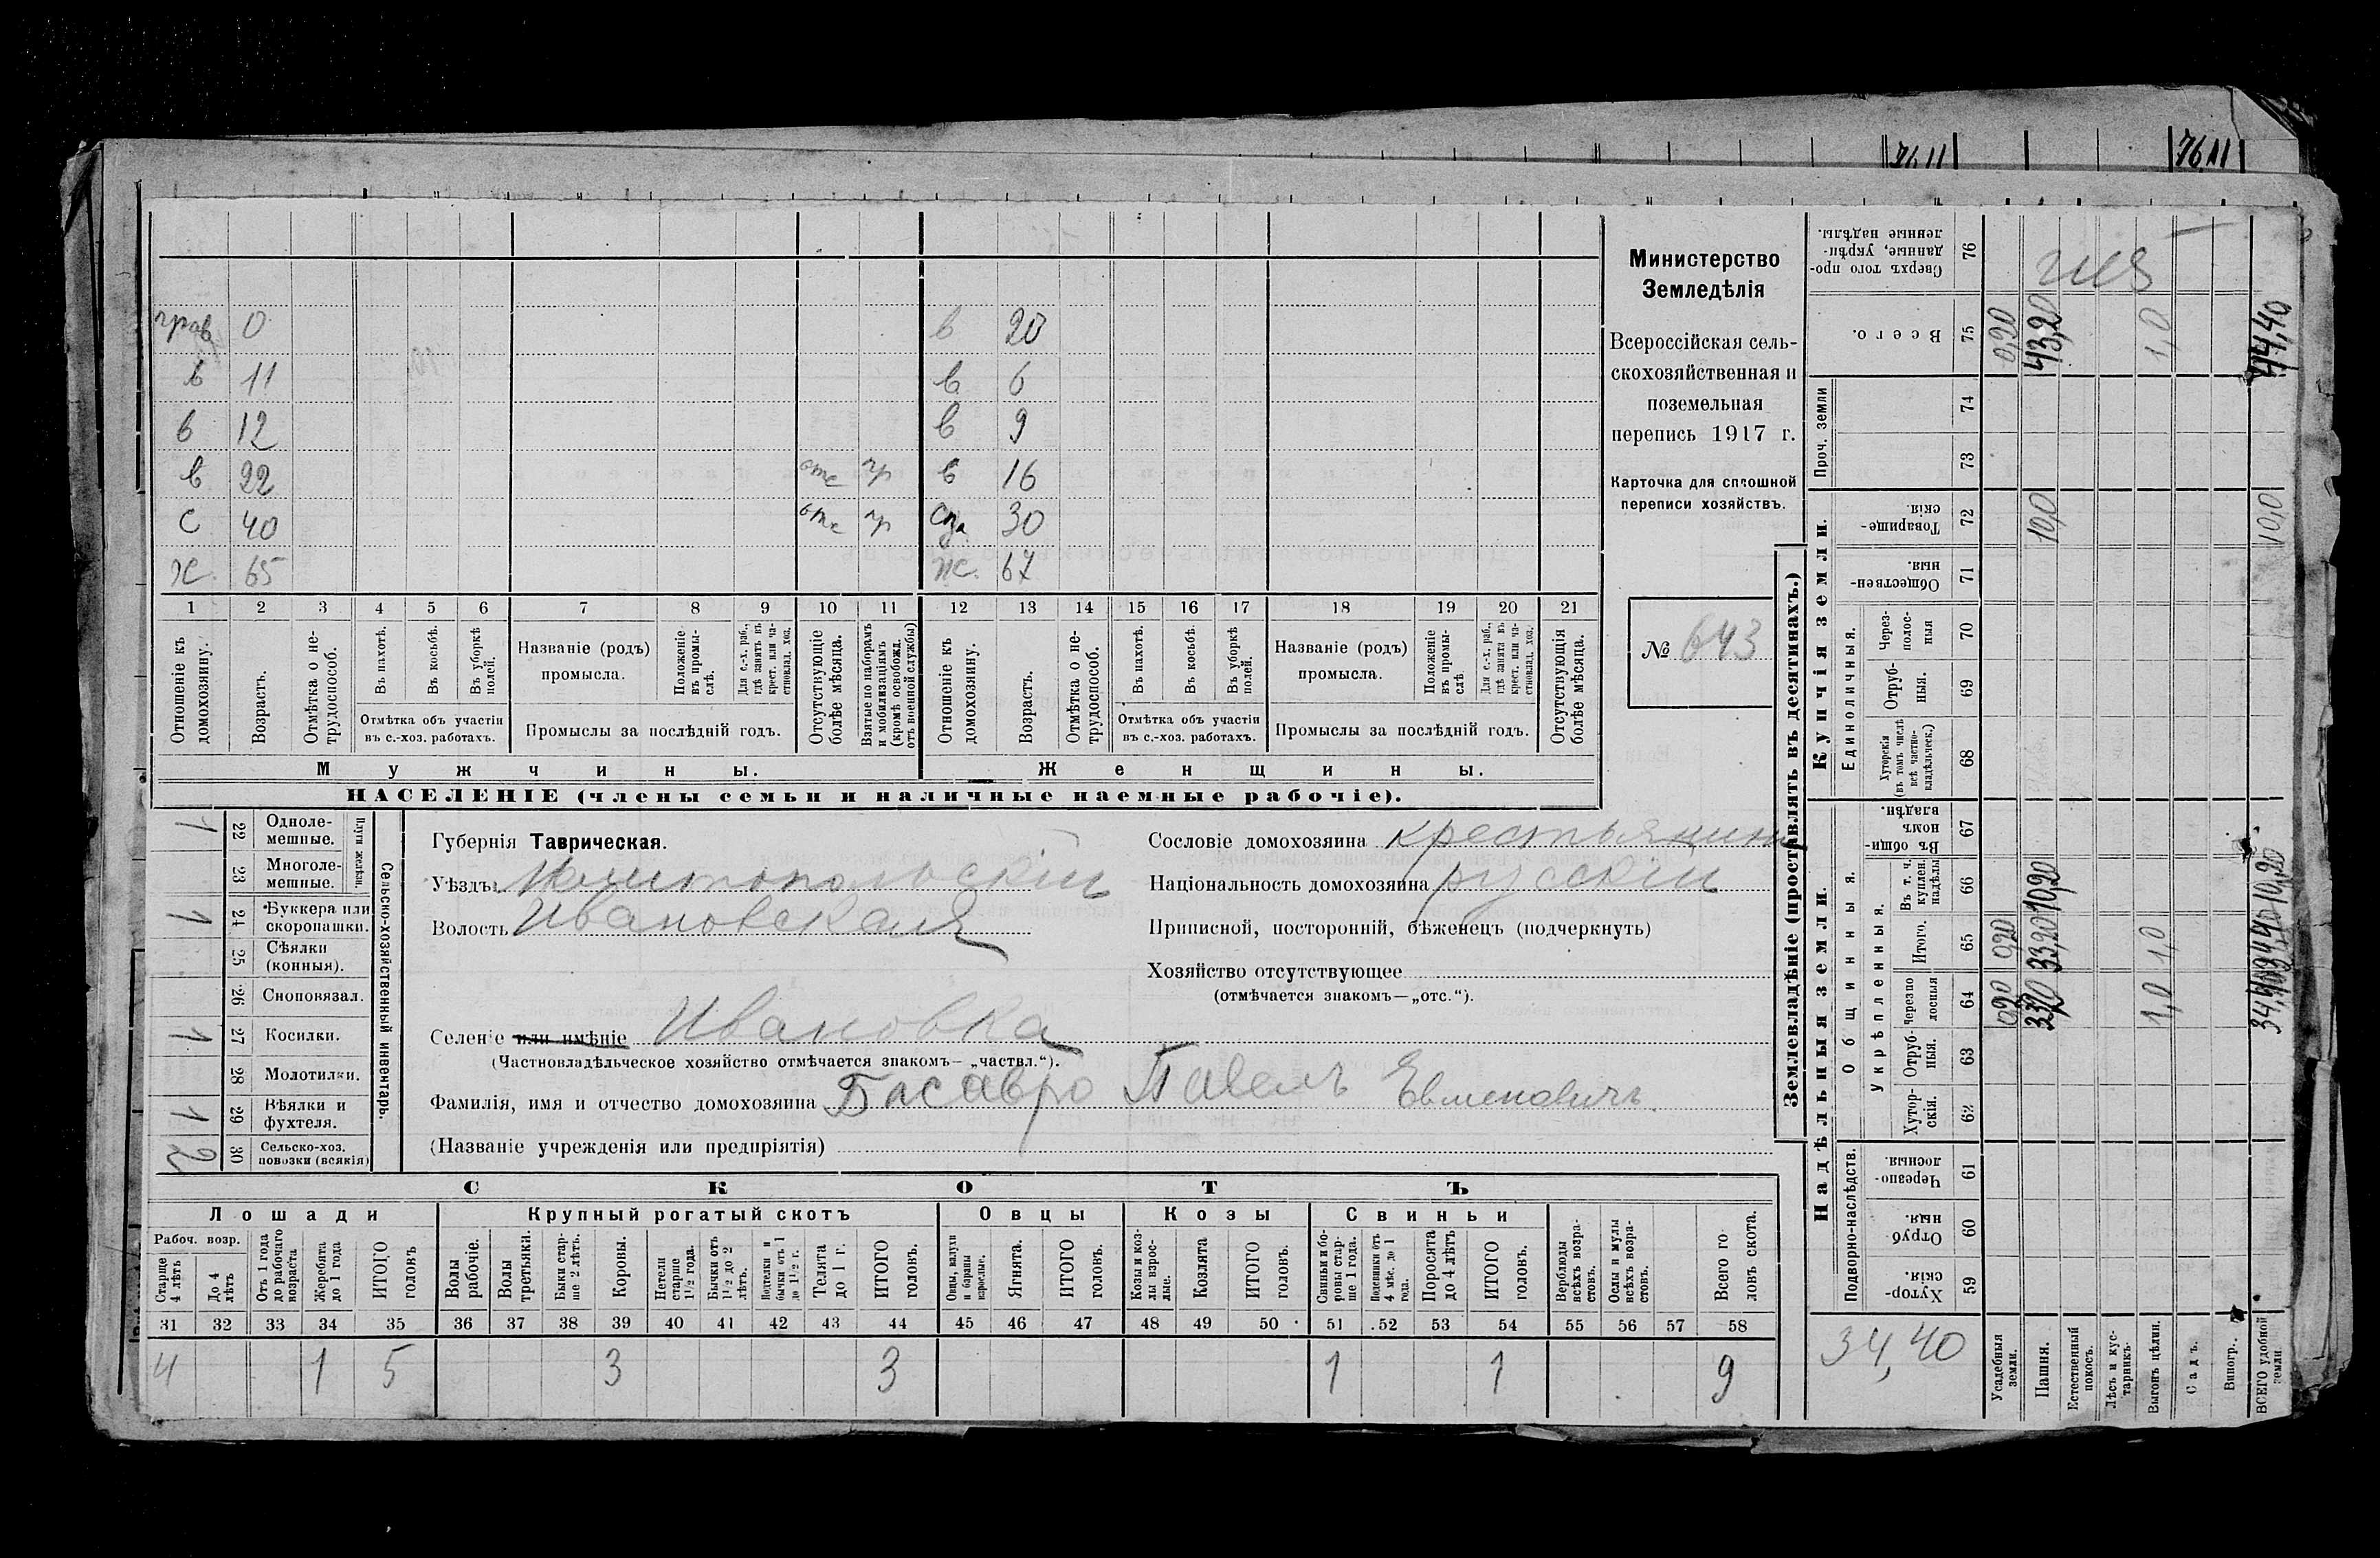 76,11 76,11
прав 0 в 20
в 11 в 6
в 12 в 9
в 22 отс пр в 16
с 40 отс пр сха 30
ж. 65 ж. 67
1 2 3 4 5 6 7 8 9 10 11 12 13 14 15 16 17 18 19 20 21
Отношеніе къ домохозяину.
Возрастъ.
Отмѣтка о нетрудоспособ.
Въ пахотѣ.
Въ косьбѣ.
Въ уборкѣ полей.
Отмѣтка объ участіи въ с.-хоз. работахъ.
Названіе (родъ) промысла.
Положеніе въ промыслѣ.
Для с.-х. раб., гдѣ занятъ въ крест. или частновлад. хоз.
Промыслы за послѣдній годъ.
Отсутствующіе болѣе мѣсяца.
Взятые по наборамъ и мобилизаціямъ (кромѣ освобожд. отъ военной службы)
Отношеніе къ домохозяину.
Возрастъ.
Отмѣтка о нетрудоспособ.
Въ пахотѣ.
Въ косьбѣ.
Въ уборкѣ полей.
Отмѣтка объ участіи въ с.-хоз. работахъ.
Названіе (родъ) промысла.
Положеніе въ промыслѣ
Для с.-х. раб., гдѣ заняти въ крест. или частновлад. хоз.
Промыслы за послѣдній годъ.
Отсутствующія болѣе мѣсяца.
Мужчины. Женщины.
НАСЕЛЕНІЕ (члены семьи и наличные наемные рабочіе).
Министерство
Земледѣлія
Всероссійская сель-
скохозяйственная и
поземельная
перепись 1917 г.
Карточка для сплошной
переписи хозяйствъ.
№ 643
Сельско-хозяйственный инвентарь.
Плуги желѣзн.
1 22 Однолемешные.
23 Многолемешные.
1 24 Буккера или скоропашки.
25 Сѣялки (конныя).
26 Сноповязал.
1 27 Косилки.
28 Молотилки.
1 29 Вѣялки и фухтеля.
2 30 Сельско-хоз. повозки (всякія)
Губернія Таврическая.
Уѣздъ Мелитопольскій
Волость Ивановская
Селеніе или имѣніе Ивановка
(Частновладѣльческое хозяйство отмѣчается знакомъ— „частвл.“).
Фамилія, имя и отчество домохозяина Басавро Павелъ Евменовичъ.
(Названіе учрежденія или предпріятія)
Сословіе домохозяина крестьянинъ
Національность домохозяина русскій
Приписной, посторонній, бѣженецъ (подчеркнуть)
Хозяйство отсутствующее
(отмѣчается знакомъ—„отс.“).
СКОТЪ
Лошади Крупный рогатый скотъ Овцы Козы Свиньи
Рабоч. возр.
Старше 4 лѣтъ
До 4 лѣтъ
Отъ 1 года до рабочаго возраста
Жеребята до 1 года
ИТОГО головъ
Волы рабочіе.
Волы третьяки.
Быки старше 2 лѣтъ.
Коровы.
Нетели старше 1½ года.
Бычки отъ 1½ до 2 лѣтъ.
Подтелки и бычки отъ 1 до 1½ г.
Телята до 1 г.
ИТОГО головъ.
Овцы, валухи и бараны взрослые.
Ягнята.
ИТОГО головъ.
Козы и козлы взрослые.
Козлята
ИТОГО головъ.
Свиньи и боровы старше 1 года.
Подсвинки отъ 4 мѣс. до 1 года.
Поросята до 4 лѣтъ
ИТОГО головъ.
Верблюды всѣхъ возрастовъ.
Ослы и мулы всѣхъ возрастовъ.
Всего головъ скота.
31 32 33 34 35 36 37 38 39 40 41 42 43 44 45 46 47 48 49 50 51 52 53 54 55 56 57 58
4 1 5 3 3 1 1 9
Землевладѣніе (проставлять въ десятинахъ.)
Надѣльныя земли. Купчія земли. Проч. земли
Подворно-наслѣдств.
Общинныя.
Укрѣпленныя.
Единоличныя.
Хуторскія. 59
Отруб ныя. 60
Черезполосныя. 61
Хуторскія. 62
Отрубныя. 63
Черезполосныя 64
Итого. 65
Въ т. ч. куплен. надѣлы 66
Въ общиномъ владѣн. 67
Хуторскія (въ томъ числѣ всѣ частновладѣльческ.) 68
Отрубныя. 69
Черезполосныя 70
Общественныя. 71
Товарищескія. 72
73
74
Всего. 75
Сверхъ того проданные, укрѣпленные надѣлы. 76
34,40
Усадебныя земли. 0,20 0,20 0,20
Пашня. 33,20 33,20 10,20 10,0 43,20
Естественный покосъ.
Лѣсъ и кустарникъ.
Выгонъ цѣлин. 1,0 1,0 1,0
Садъ.
Виногр.
ВСЕГО удобной земли 34,40 34,40 10,20 10,0 44,40